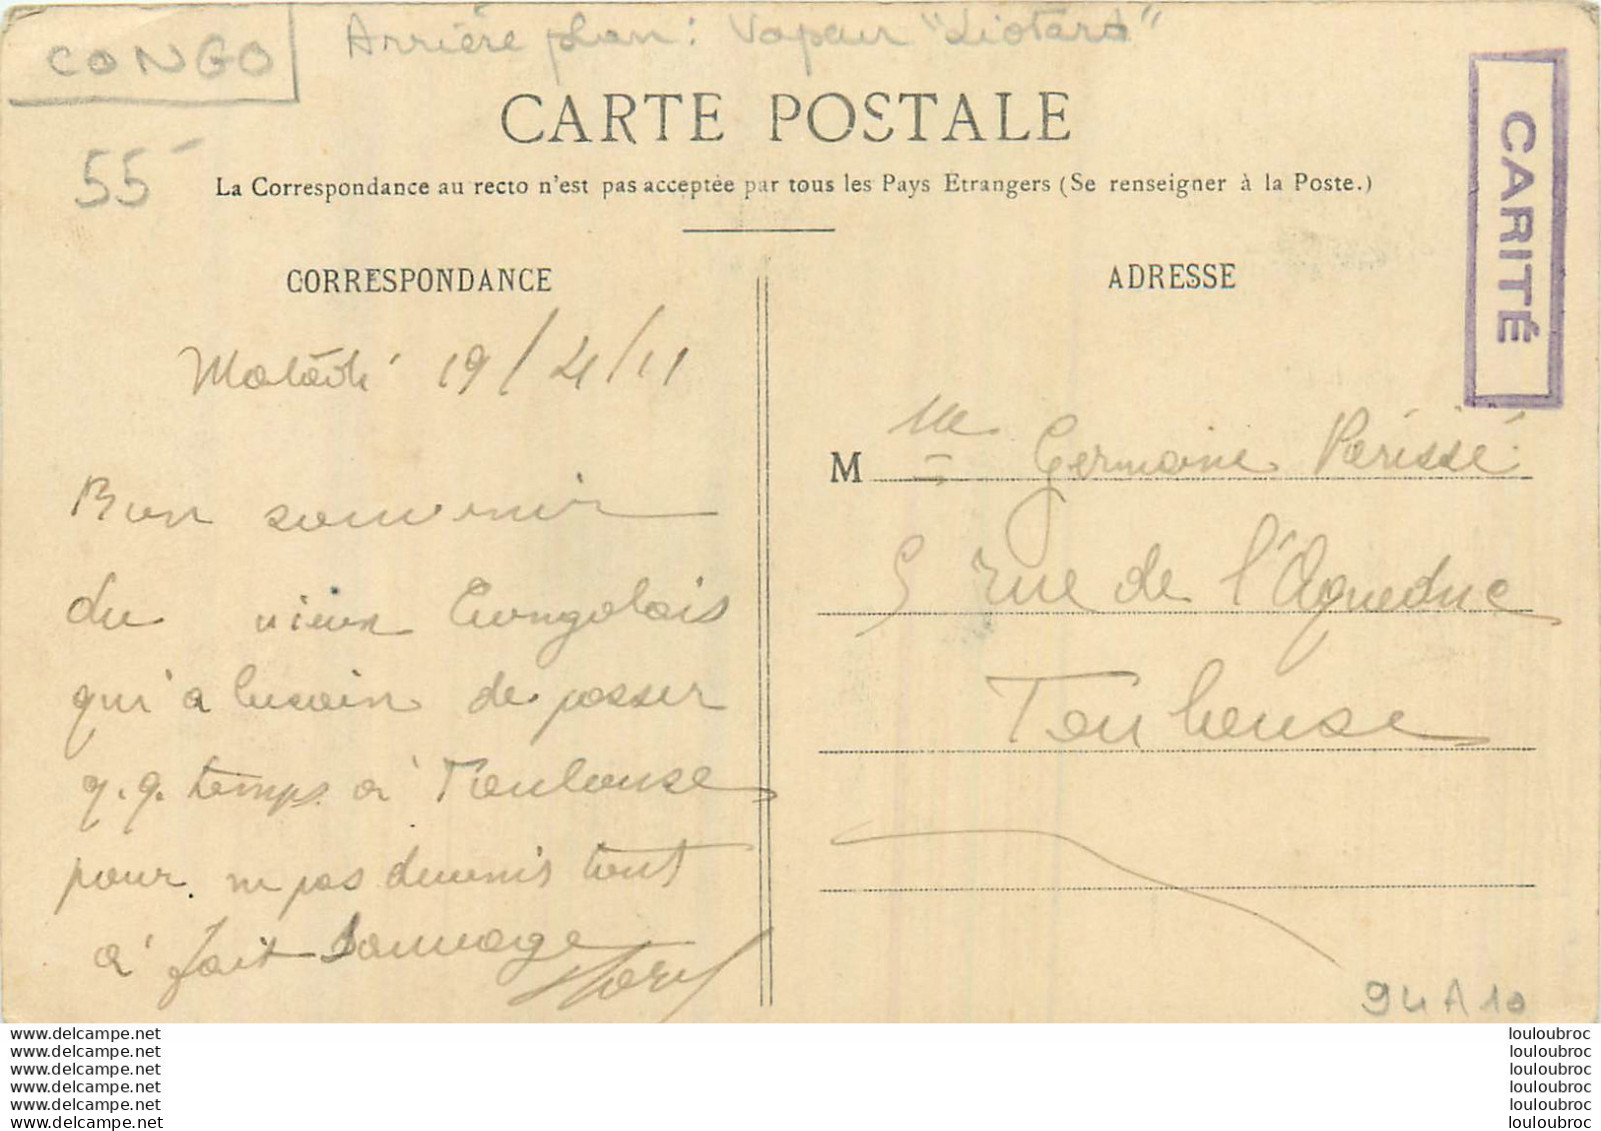 CONGO
Arrière plan: Vapeur "Liotard"
CARTE POSTALE
55
La Correspondance au recto n'est pas acceptée par tous les Pays Etrangers (Se renseigner à la Poste.)
CARITÉ
CORRESPONDANCE
19/4/11
Bon souvenir
du vieux Congolais
qui a besoin de passer
q.q. temps à Toulouse
pour ne pas devenir tout
à fait sauvage
ADRESSE
M lle Germaine Périssé
5 rue de l'Aqueduc
Toulouse
94A10
www.delcampe.net
www.delcampe.net
www.delcampe.net
www.delcampe.net
www.delcampe.net
www.delcampe.net
louloubroc
louloubroc
louloubroc
louloubroc
louloubroc
louloubroc